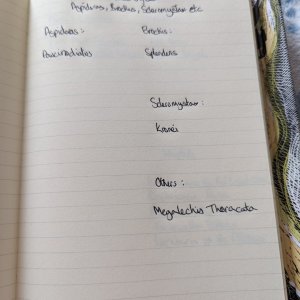 Aspidoras, Brochis, Scleromystax etc
Aspidoras: Brochis:
Pauciradiatus Splendens
Scleromystax:
Kronei
Others:
Megalechis Thoracata